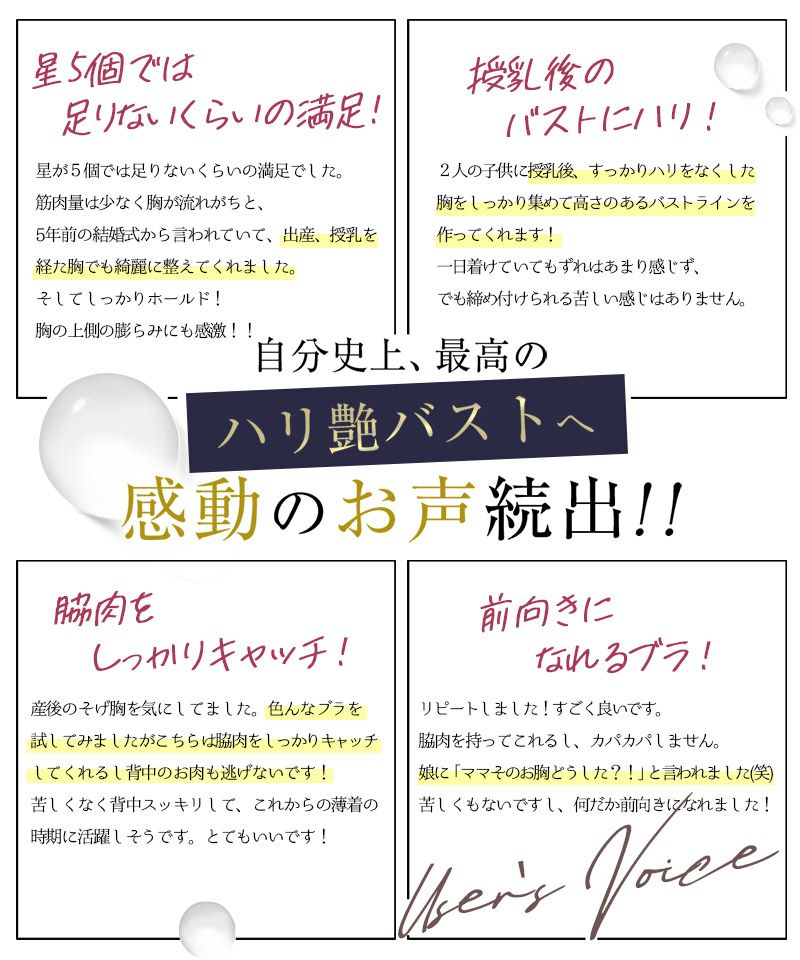 星5個では
足りないくらいの満足!
星が５個では足りないくらいの満足でした。
筋肉量は少なく胸が流れがちと、
5年前の結婚式から言われていて、出産、授乳を
経た胸でも綺麗に整えてくれました。
そしてしっかりホールド！
胸の上側の膨らみにも感激！！
授乳後の
バストにハリ！
２人の子供に授乳後、すっかりハリをなくした
胸をしっかり集めて高さのあるバストラインを
作ってくれます！
一日着けていてもずれはあまり感じず、
でも締め付けられる苦しい感じはありません。
自分史上、最高の
ハリ艶バストへ
感動のお声続出!!
脇肉を
しっかりキャッチ！
産後のそげ胸を気にしてました。色んなブラを
試してみましたがこちらは脇肉をしっかりキャッチ
してくれるし背中のお肉も逃げないです！
苦しくなく背中スッキリして、これからの薄着の
時期に活躍しそうです。とてもいいです！
前向きに
なれるブラ！
リピートしました！すごく良いです。
脇肉を持ってこれるし、カパカパしません。
娘に「ママそのお胸どうした？！」と言われました(笑)
苦しくもないですし、何だか前向きになれました！
User's Voice